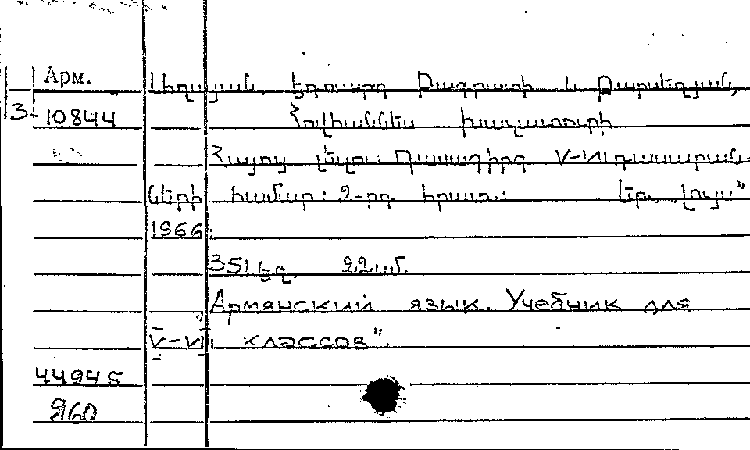 Арм.
Էդուարդ Բագրատի և Բարսեղյան,
3-10844
Հովհաննես Խաչատուրի
Հայոց լեզու: Դասագիրք V-VII դասարան-
ների համար: 2-րդ հրատ.: Եր., Լույս"
1966:
351 էջ. 22սմ.
Армянский язык. Учебник для
V-VII классов".
44945
960